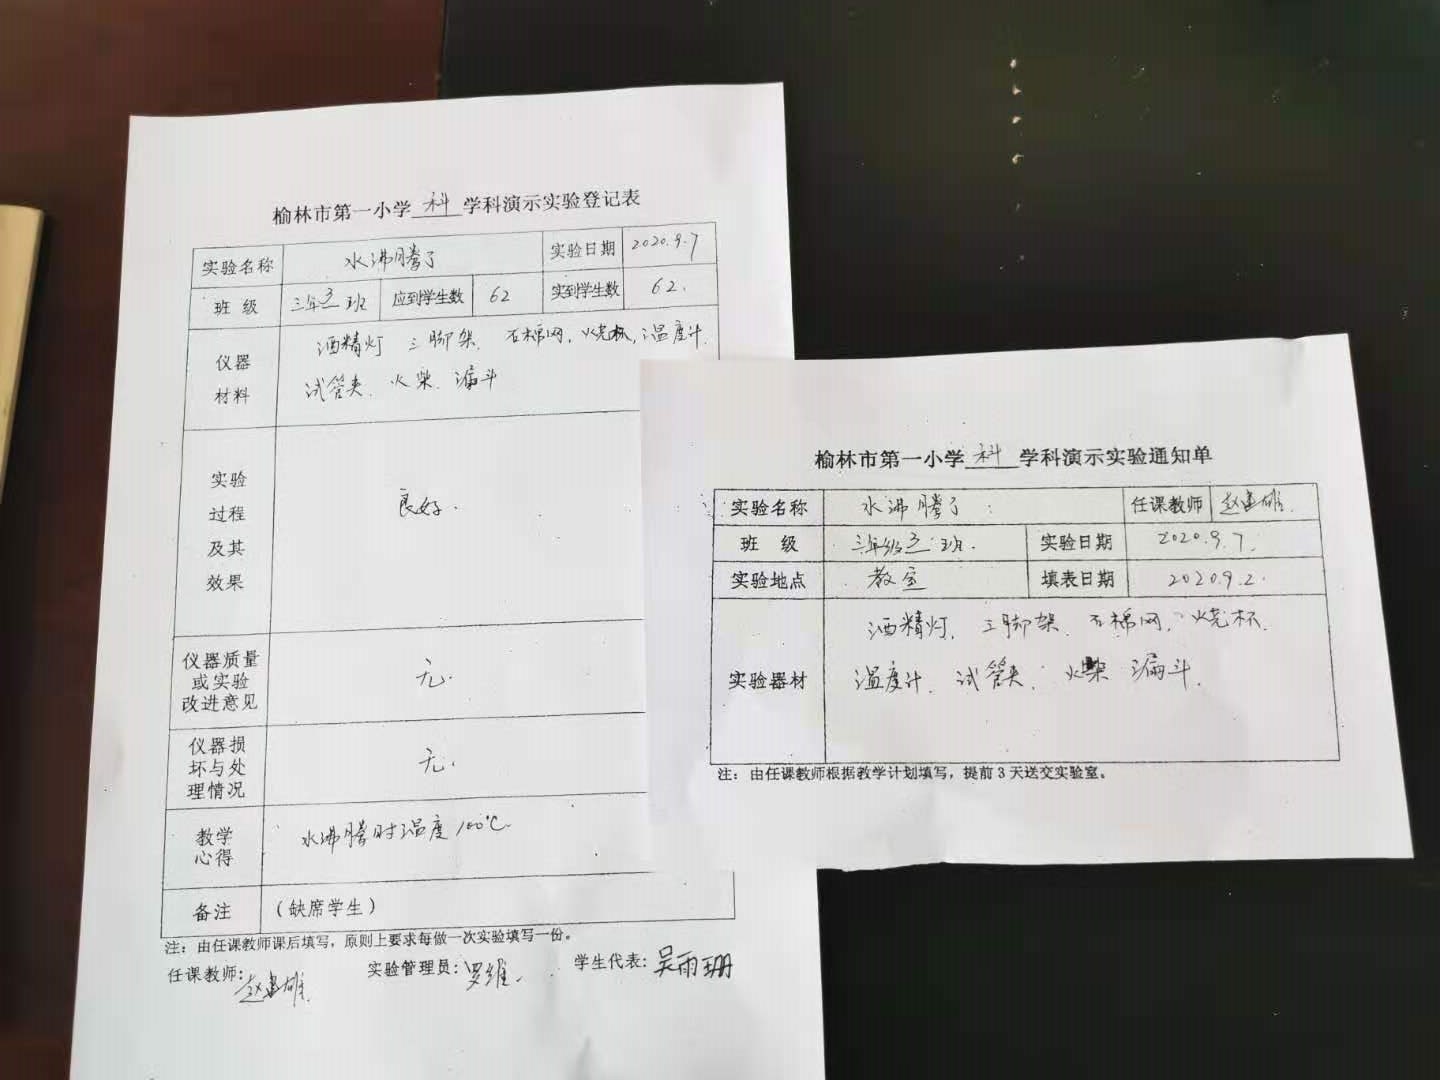 榆林市第一小学 科 学科演示实验登记表
实验名称 水沸腾了 实验日期 2020.9.7
班 级 三年3班 应到学生数 62 实到学生数 62.
仪器材料 酒精灯 三脚架. 石棉网, 烧杯, 温度计.
试管夹. 火柴. 漏斗
实验过程及其效果 良好.
仪器质量或实验改进意见 无.
仪器损坏与处理情况 无.
教学心得 水沸腾时温度100℃.
备注 (缺席学生)
注：由任课教师课后填写，原则上要求每做一次实验填写一份。
任课教师: 赵建雄 实验管理员: 罗维. 学生代表: 吴雨珊
榆林市第一小学 科 学科演示实验通知单
实验名称 水沸腾了 任课教师 赵建雄
班 级 三年级3班. 实验日期 2020.9.7.
实验地点 教室 填表日期 2020.9.2.
实验器材 酒精灯. 三脚架. 石棉网. 烧杯.
温度计. 试管夹. 火柴 漏斗.
注：由任课教师根据教学计划填写，提前3天送交实验室。